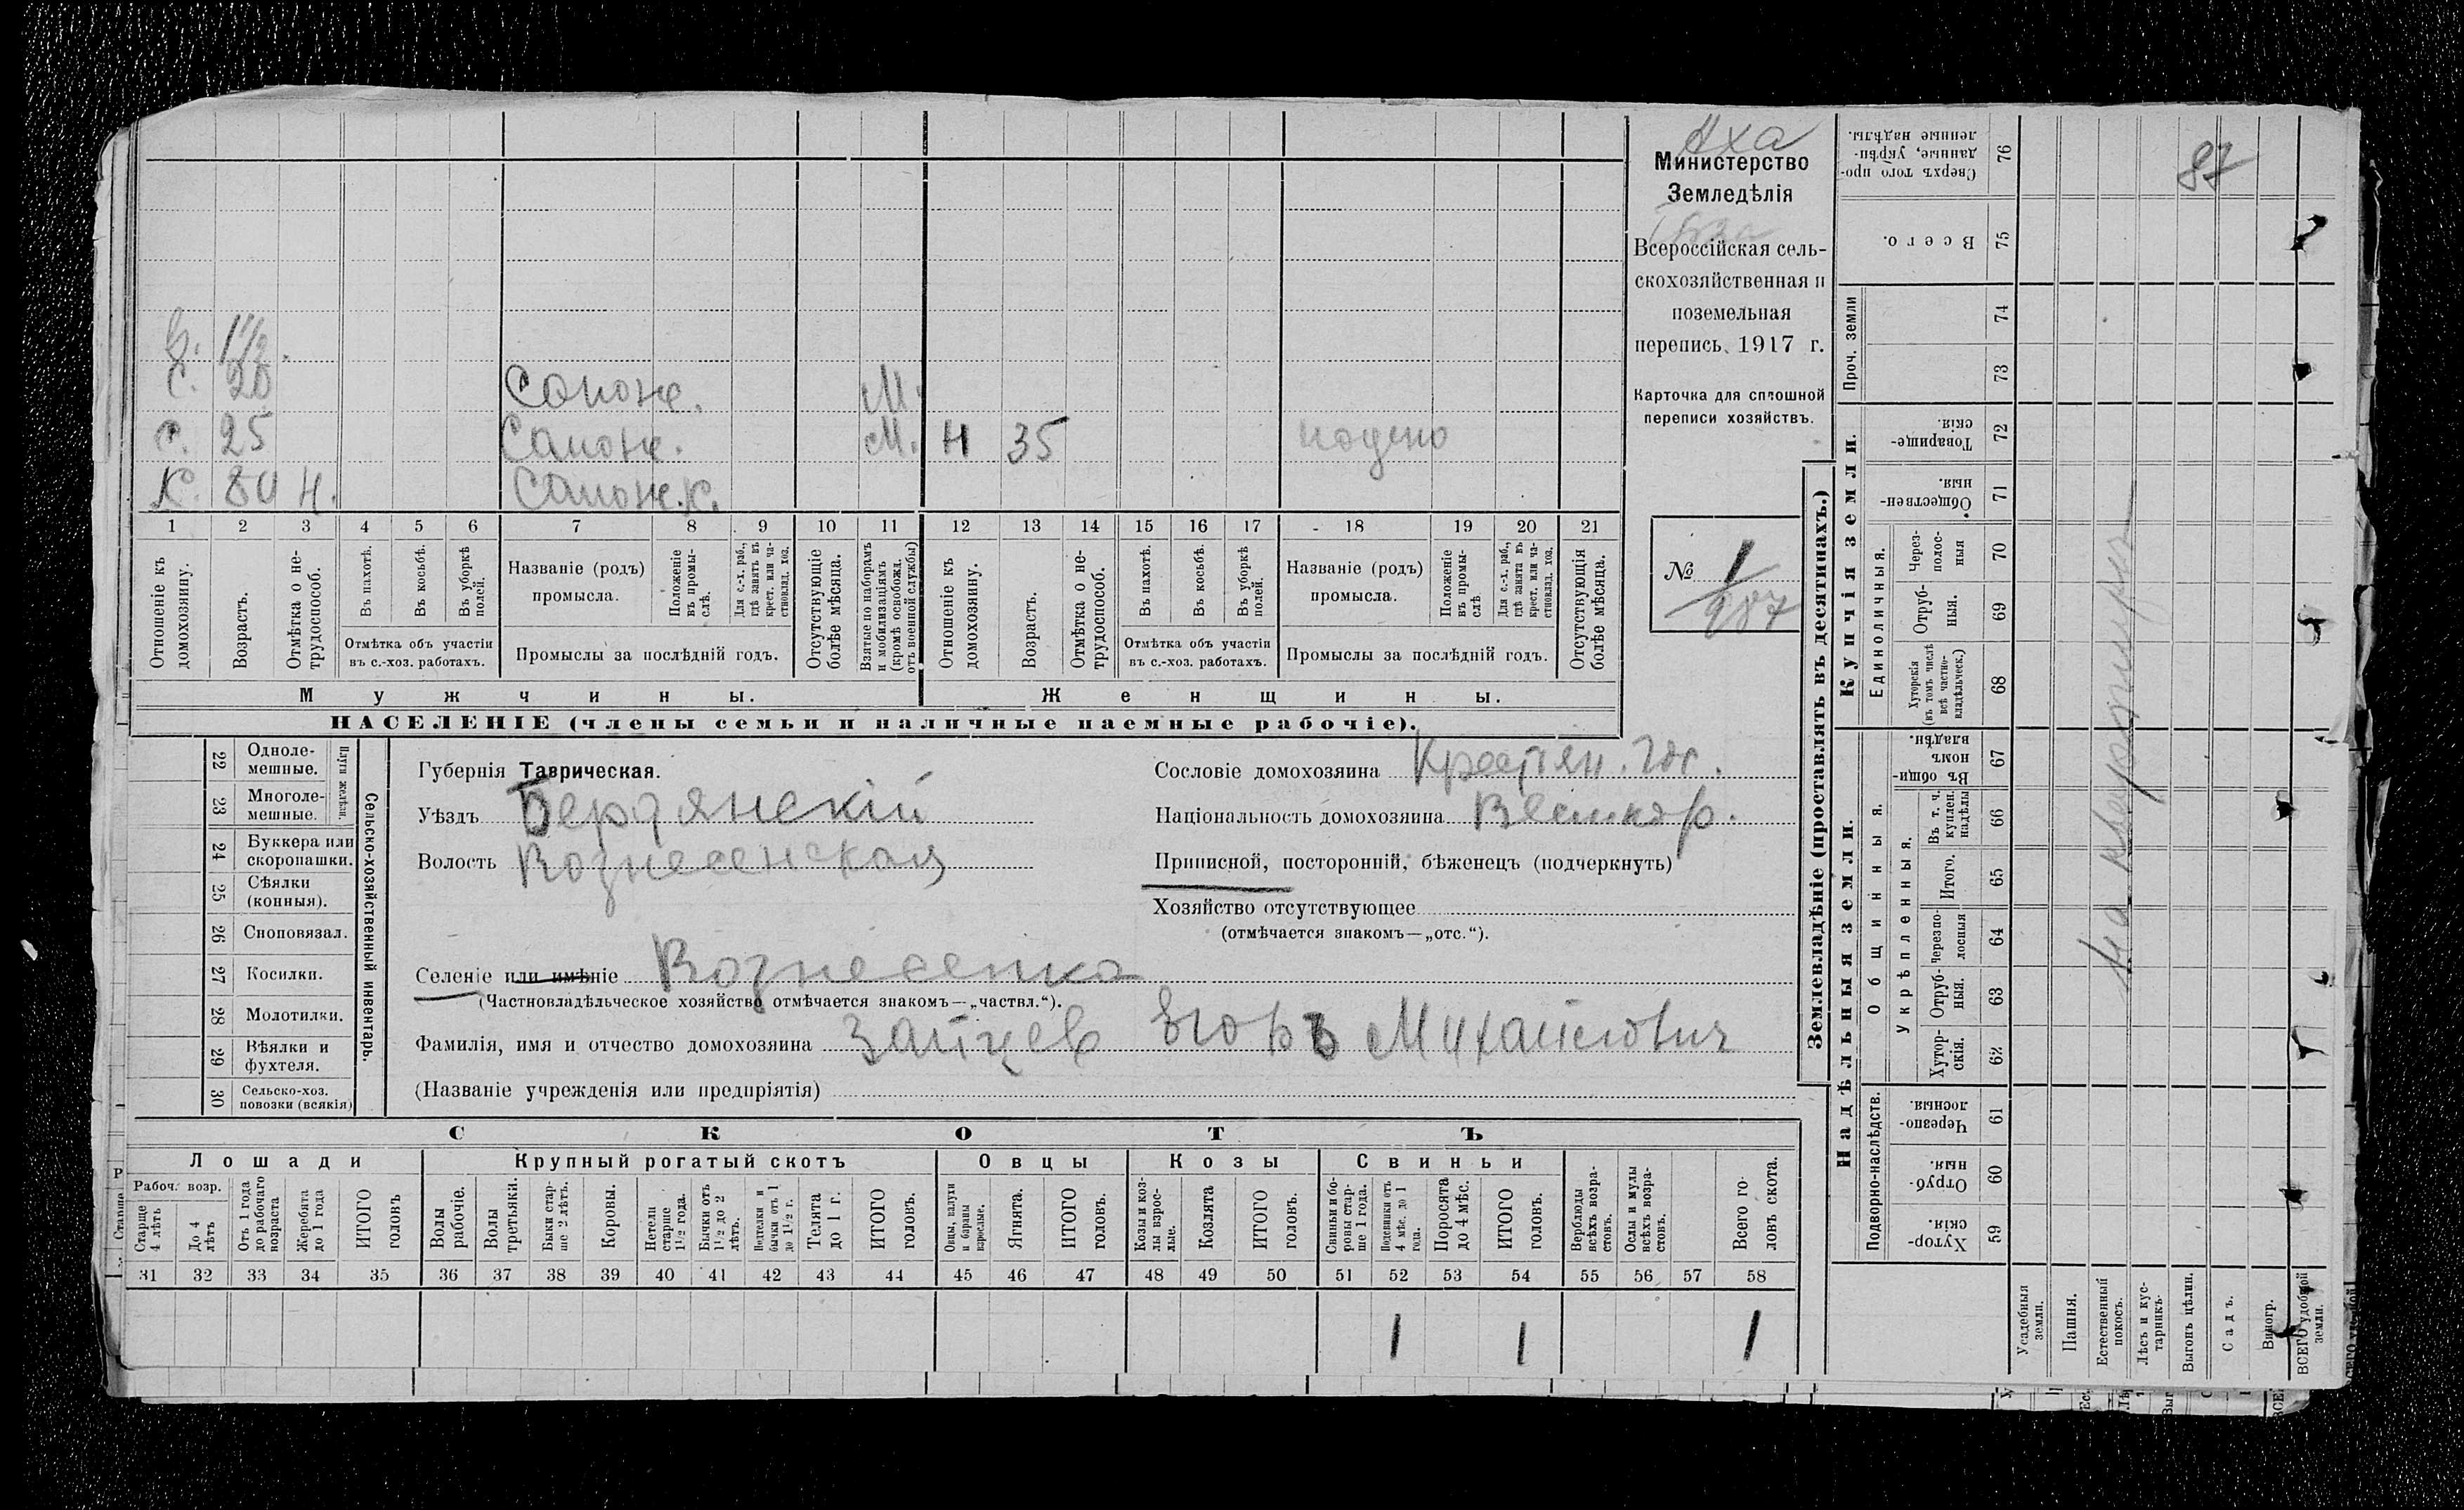 Аха
Министерство
Земледѣлія
Всероссійская сель-
скохозяйственная и
поземельная
перепись 1917 г.
Карточка для сплошной
переписи хозяйствъ.
№ 1
287
87
1 1/2
с. 20 Сапож. М.
с. 25 Сапож. М. Н 35 подено
К. 80 Н. Сапож. К.
1 2 3 4 5 6 7 8 9 10 11 12 13 14 15 16 17 18 19 20 21
Отношеніе къ домохозяину.
Возрастъ.
Отмѣтка о не-трудоспособ.
Въ пахотѣ.
Въ косьбѣ.
Въ уборкѣ полей.
Отмѣтка объ участіи
въ с.-хоз. работахъ.
Названіе (родъ)
промысла.
Положеніе въ промы-слѣ.
Для с.-х. раб., гдѣ занятъ въ крест. или ча-стновлад. хоз.
Промыслы за послѣдній годъ.
Отсутствующіе болѣе мѣсяца.
Взятые по наборамъ и мобилизаціямъ (кромѣ освобожд. отъ военной службы)
Отношеніе къ домохозяину.
Возрастъ.
Отмѣтка о не-трудоспособ.
Въ пахотѣ.
Въ косьбѣ.
Въ уборкѣ полей.
Отмѣтка объ участіи
въ с.-хоз. работахъ.
Названіе (родъ)
промысла.
Положеніе въ промы-слѣ
Для с.-х. раб., гдѣ занята въ крест. или ча-стновлад. хоз.
Промыслы за послѣдній годъ.
Отсутствующія болѣе мѣсяца.
Мужчины. Женщины.
НАСЕЛЕНІЕ (члены семьи и наличные наемные рабочіе).
Сельско-хозяйственный инвентарь.
Плуги желѣзн.
22 Одноле-мешные.
23 Многоле-мешные.
24 Буккера или скоропашки.
25 Сѣялки (конныя).
26 Сноповязал.
27 Косилки.
28 Молотилки.
29 Вѣялки и фухтеля.
30 Сельско-хоз. повозки (всякія)
Губернія Таврическая.
Уѣздъ Бердянскій
Волость Вознесенская
Селеніе или имѣніе Вознесенка
(Частновладѣльческое хозяйство отмѣчается знакомъ—„частвл.“).
Фамилія, имя и отчество домохозяина Зайцев Егоръ Михайлович
(Названіе учрежденія или предпріятія)
Сословіе домохозяина Крестьян. гос.
Національность домохозяина Великор.
Приписной, посторонній, бѣженецъ (подчеркнуть)
Хозяйство отсутствующее
(отмѣчается знакомъ—„отс.“).
СКОТЪ
Лошади Крупный рогатый скотъ Овцы Козы Свиньи
Рабоч. возр.
Старше 4 лѣтъ
До 4 лѣтъ
Отъ 1 года до рабочаго возраста
Жеребята до 1 года
ИТОГО головъ
Волы рабочіе.
Волы третьяки.
Быки стар-ше 2 лѣтъ.
Коровы.
Нетели старше 1 1/2 года.
Бычки отъ 1 1/2 до 2 лѣтъ.
Подтелки и бычки отъ 1 до 1 1/2 г.
Телята до 1 г.
ИТОГО головъ.
Овцы, валухи и бараны взрослые.
Ягнята.
ИТОГО головъ.
Козы и коз-лы взрос-лые.
Козлята
ИТОГО головъ.
Свиньи и бо-ровы стар-ше 1 года.
Подсвинки отъ 4 мѣс. до 1 года.
Поросята до 4 мѣс.
ИТОГО головъ.
Верблюды всѣхъ возра-стовъ.
Ослы и мулы всѣхъ возра-стовъ.
Всего го-ловъ скота.
31 32 33 34 35 36 37 38 39 40 41 42 43 44 45 46 47 48 49 50 51 52 53 54 55 56 57 58
1 1 1
Землевладѣніе (проставлять въ десятинахъ.)
Надѣльныя земли.
Купчія земли.
Проч. земли
Подворно-наслѣдств.
Общинныя.
Укрѣпленныя.
Единоличныя.
Сверхъ того про-данные, укрѣп-ленные надѣлы. 76
Всего. 75
74
73
Товарище-скія. 72
Обществен-ныя. 71
Через-полос-ныя 70
Отруб-ныя. 69
Хуторскія (въ томъ числѣ всѣ частно-владѣльческ.) 68
Въ общи-номъ владѣн. 67
Въ т. ч. куплен. надѣлы 66
Итого. 65
Черезпо-лосныя 64
Отруб-ныя. 63
Хутор-скія. 62
Черезпо-лосныя. 61
Отруб-ныя. 60
Хутор-скія. 59
На квартире
Усадебныя земли.
Пашня.
Естественный покосъ.
Лѣсъ и кус-тарникъ.
Выгонъ цѣлин.
Садъ.
Виногр.
ВСЕГО удобной земли.